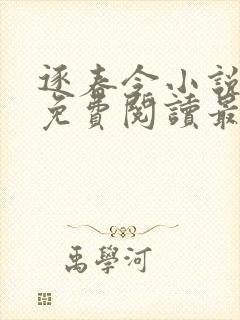 逐春令小說
免費閱讀最
禹學河